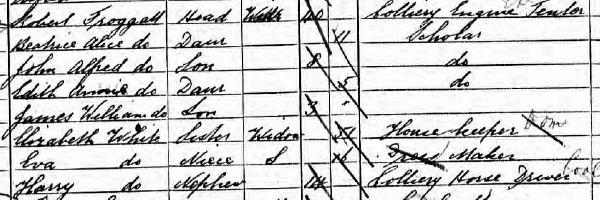 Robert Froggatt Head Widr 40 Colliery Engine Tenter
Beatrice Alice do Daur 11 Scholar
John Alfred do Son 8 do
Edith Annie do Daur 5 do
James William do Son 3 "
Elizabeth White Sister Widow 51 House keeper Dom
Eva do Niece S Dress Maker
Harry do Nephew 14 Colliery Horse Driver Coal